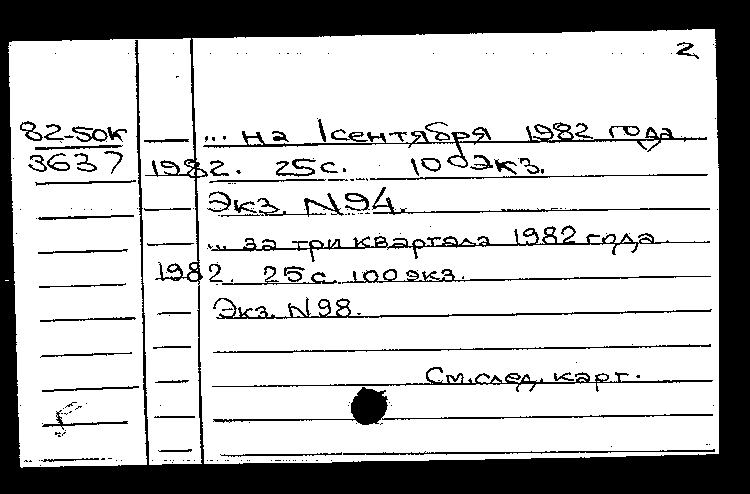 2
82-50к ... на 1 сентября 1982 года
3637 1982. 25 с. 100 экз.
Экз. N 94.
... за три квартала 1982 года.
1982. 25 с. 100 экз.
Экз. N 98.
См. след. карт.